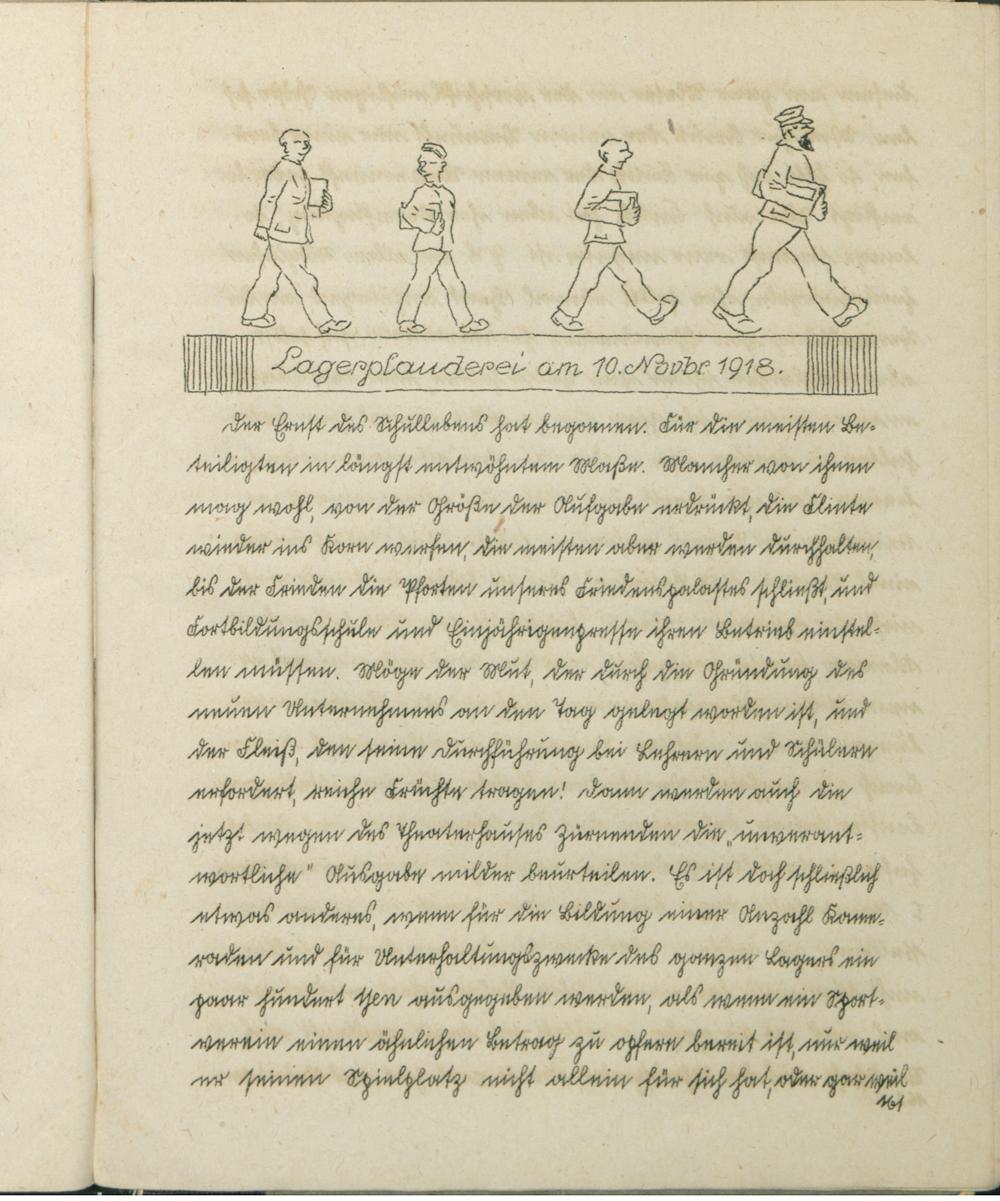 Lagerplauderei am 10. Novbr 1918.
Der Ernst des Schullebens hat begonnen. Für die meisten Be-
teiligten in längst entwöhntem Maße. Mancher von ihnen
mag wohl, von der Größe der Aufgabe erdrückt, die Flinte
wieder ins Korn werfen, die meisten aber werden durchhalten,
bis der Frieden die Pforten unseres Friedenspalastes schließt, und
Fortbildungsschule und Einjährigenpresse ihren Betrieb einstel-
len müssen. Möge der Mut, der durch die Gründung des
neuen Unternehmens an den Tag gelegt worden ist, und
der Fleiß, den seine Durchführung bei Lehrern und Schülern
erfordert, reiche Früchte tragen! Dann werden auch die
jetzt wegen des Theaterhauses Zürnenden die „unverant-
wortliche" Ausgabe milder beurteilen. Es ist doch schließlich
etwas anderes, wenn für die Bildung einer Anzahl Kame-
raden und für Unterhaltungszwecke des ganzen Lagers ein
paar hundert Yen ausgegeben werden, als wenn ein Sport-
verein einen ähnlichen Betrag zu opfern bereit ist, nur weil
er seinen Spielplatz nicht allein für sich hat, oder gar weil
161